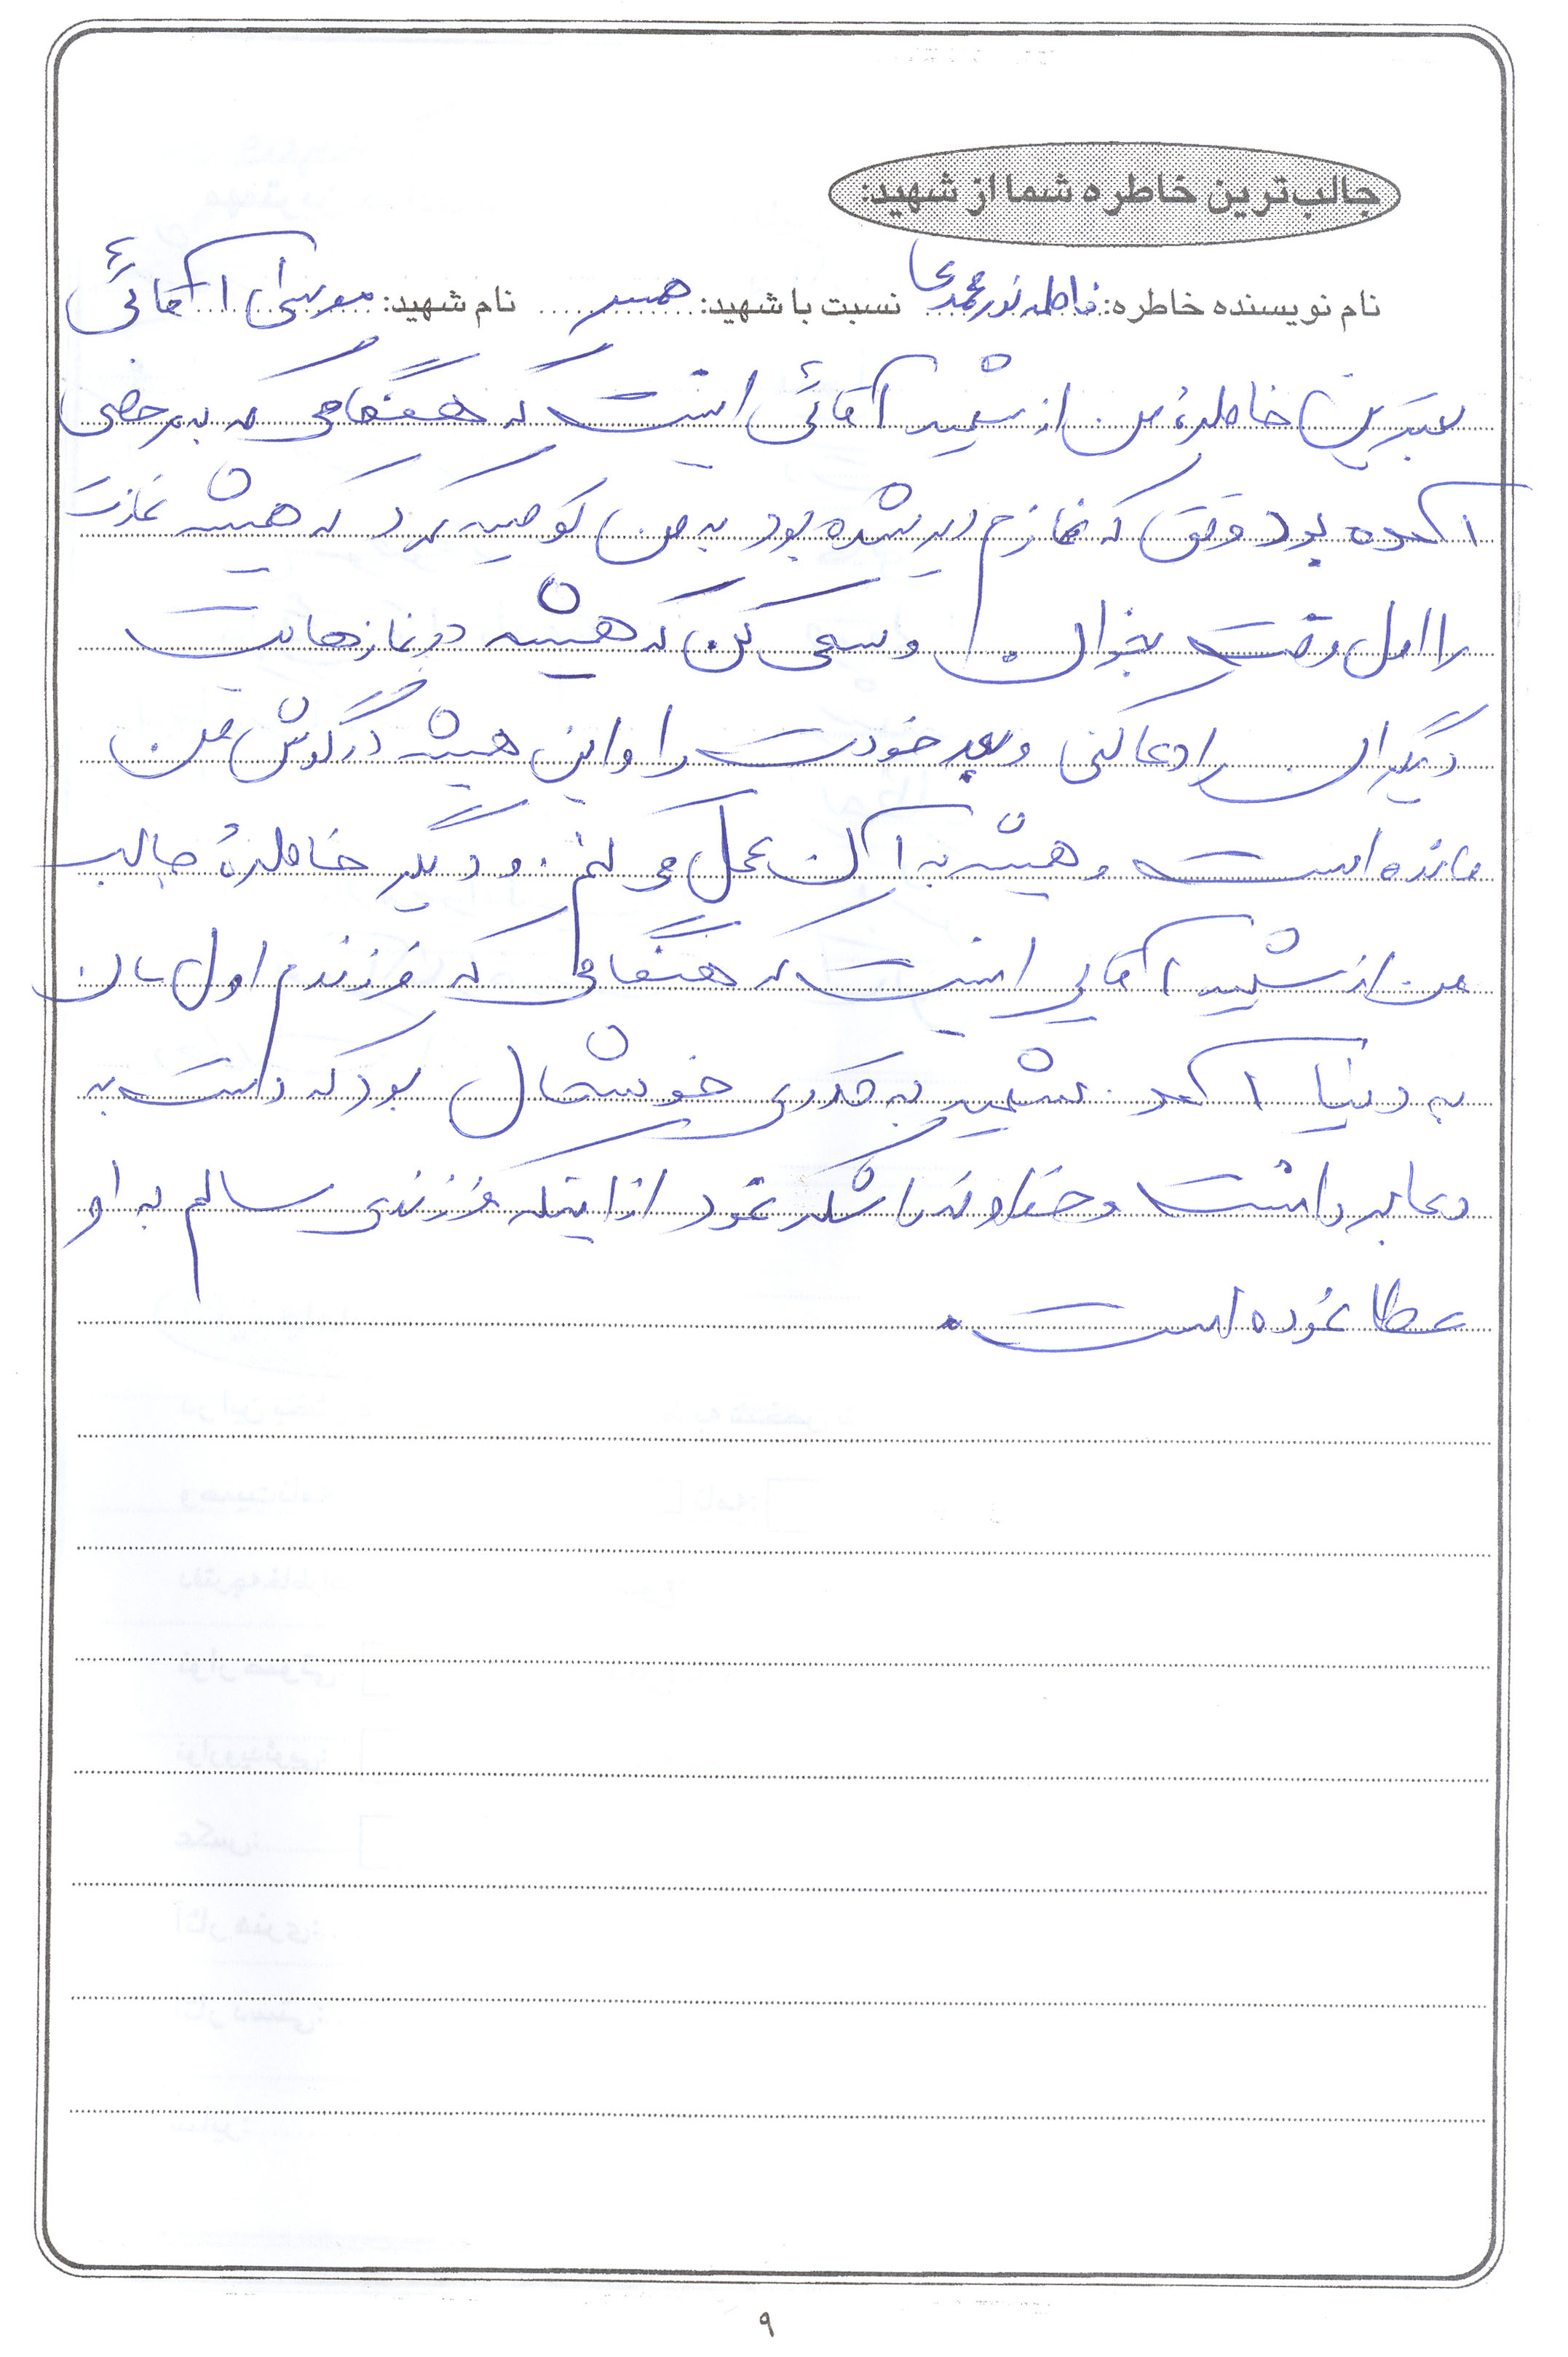 جالب‌ترین خاطره شما از شهید:
نام نویسنده خاطره: فاطمه نورمحمدی نسبت با شهید: همسر نام شهید: موسی آقائی
بهترین خاطرهٔ من از شهید آقائی اینست که هنگامی که به مرخصی
آمده بود وقتی که نمازم دیر شده بود به من توصیه کرد که همیشه نمازت
را اول وقت بخوان و سعی کن که همیشه در نمازهایت
دیگران را دعا کنی و بعد خودت را و این همیشه در گوش من
مانده است و همیشه به آن عمل می کنم. و دیگر خاطرهٔ جالب
من از شهید آقایی اینست که هنگامی که فرزندم اول مان
به دنیا آمد. شهید به قدری خوشحال بود که دست به
دعا برداشت و خداوند را شکر نمود از اینکه فرزندی سالم به او
عطا نموده است.
۹